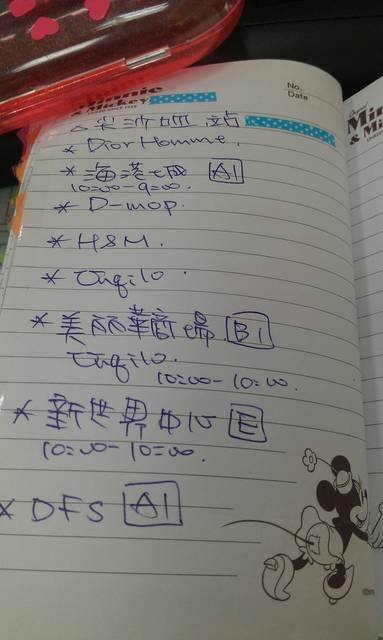 Minnie
& Mickey
No.
Date
△ 尖沙咀 站
* Dior Homme.
* 海港城 A1
10:00-9:00.
* D-mop.
* H&M.
* Uniqilo.
* 美丽華商場 B1
Uniqilo.
10:00-10:00.
* 新世界中心 E
10:00-10:00.
* DFS A1